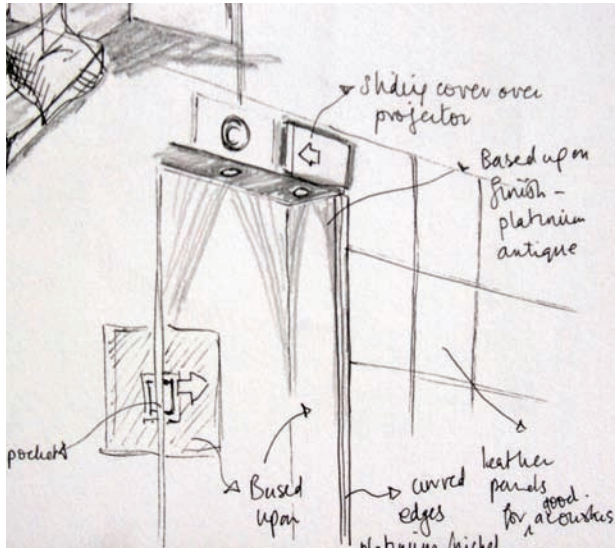 sliding cover over
projector
Based upon
finish -
platinium
antique
pockets
Based
upon
curved
edges
platinium nickel
leather
panels
for good acoustics